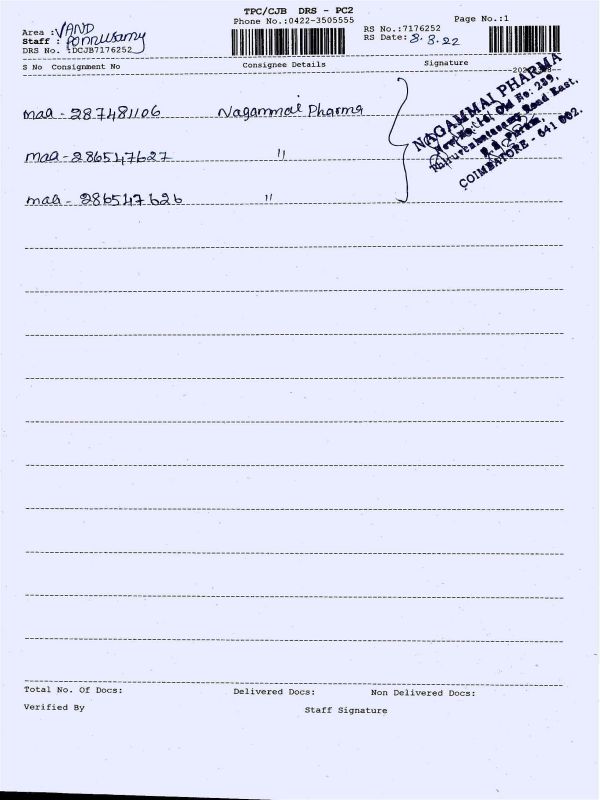 TPC/CJB DRS - PC2
Phone No.:0422-3505555
Page No.:1
Area : VAND
Staff : Ponnusamy
DRS No. :DCJB7176252
RS No.:7176252
RS Date: 3.3.22
S No Consignment No Consignee Details Signature
maa - 287481106 Nagammal Pharma
maa - 286547627 "
maa - 286547626 "
NAGAMMAL PHARMA
Old No: 239,
Road East,
COIMBATORE - 641 002.
Total No. Of Docs: Delivered Docs: Non Delivered Docs:
Verified By Staff Signature